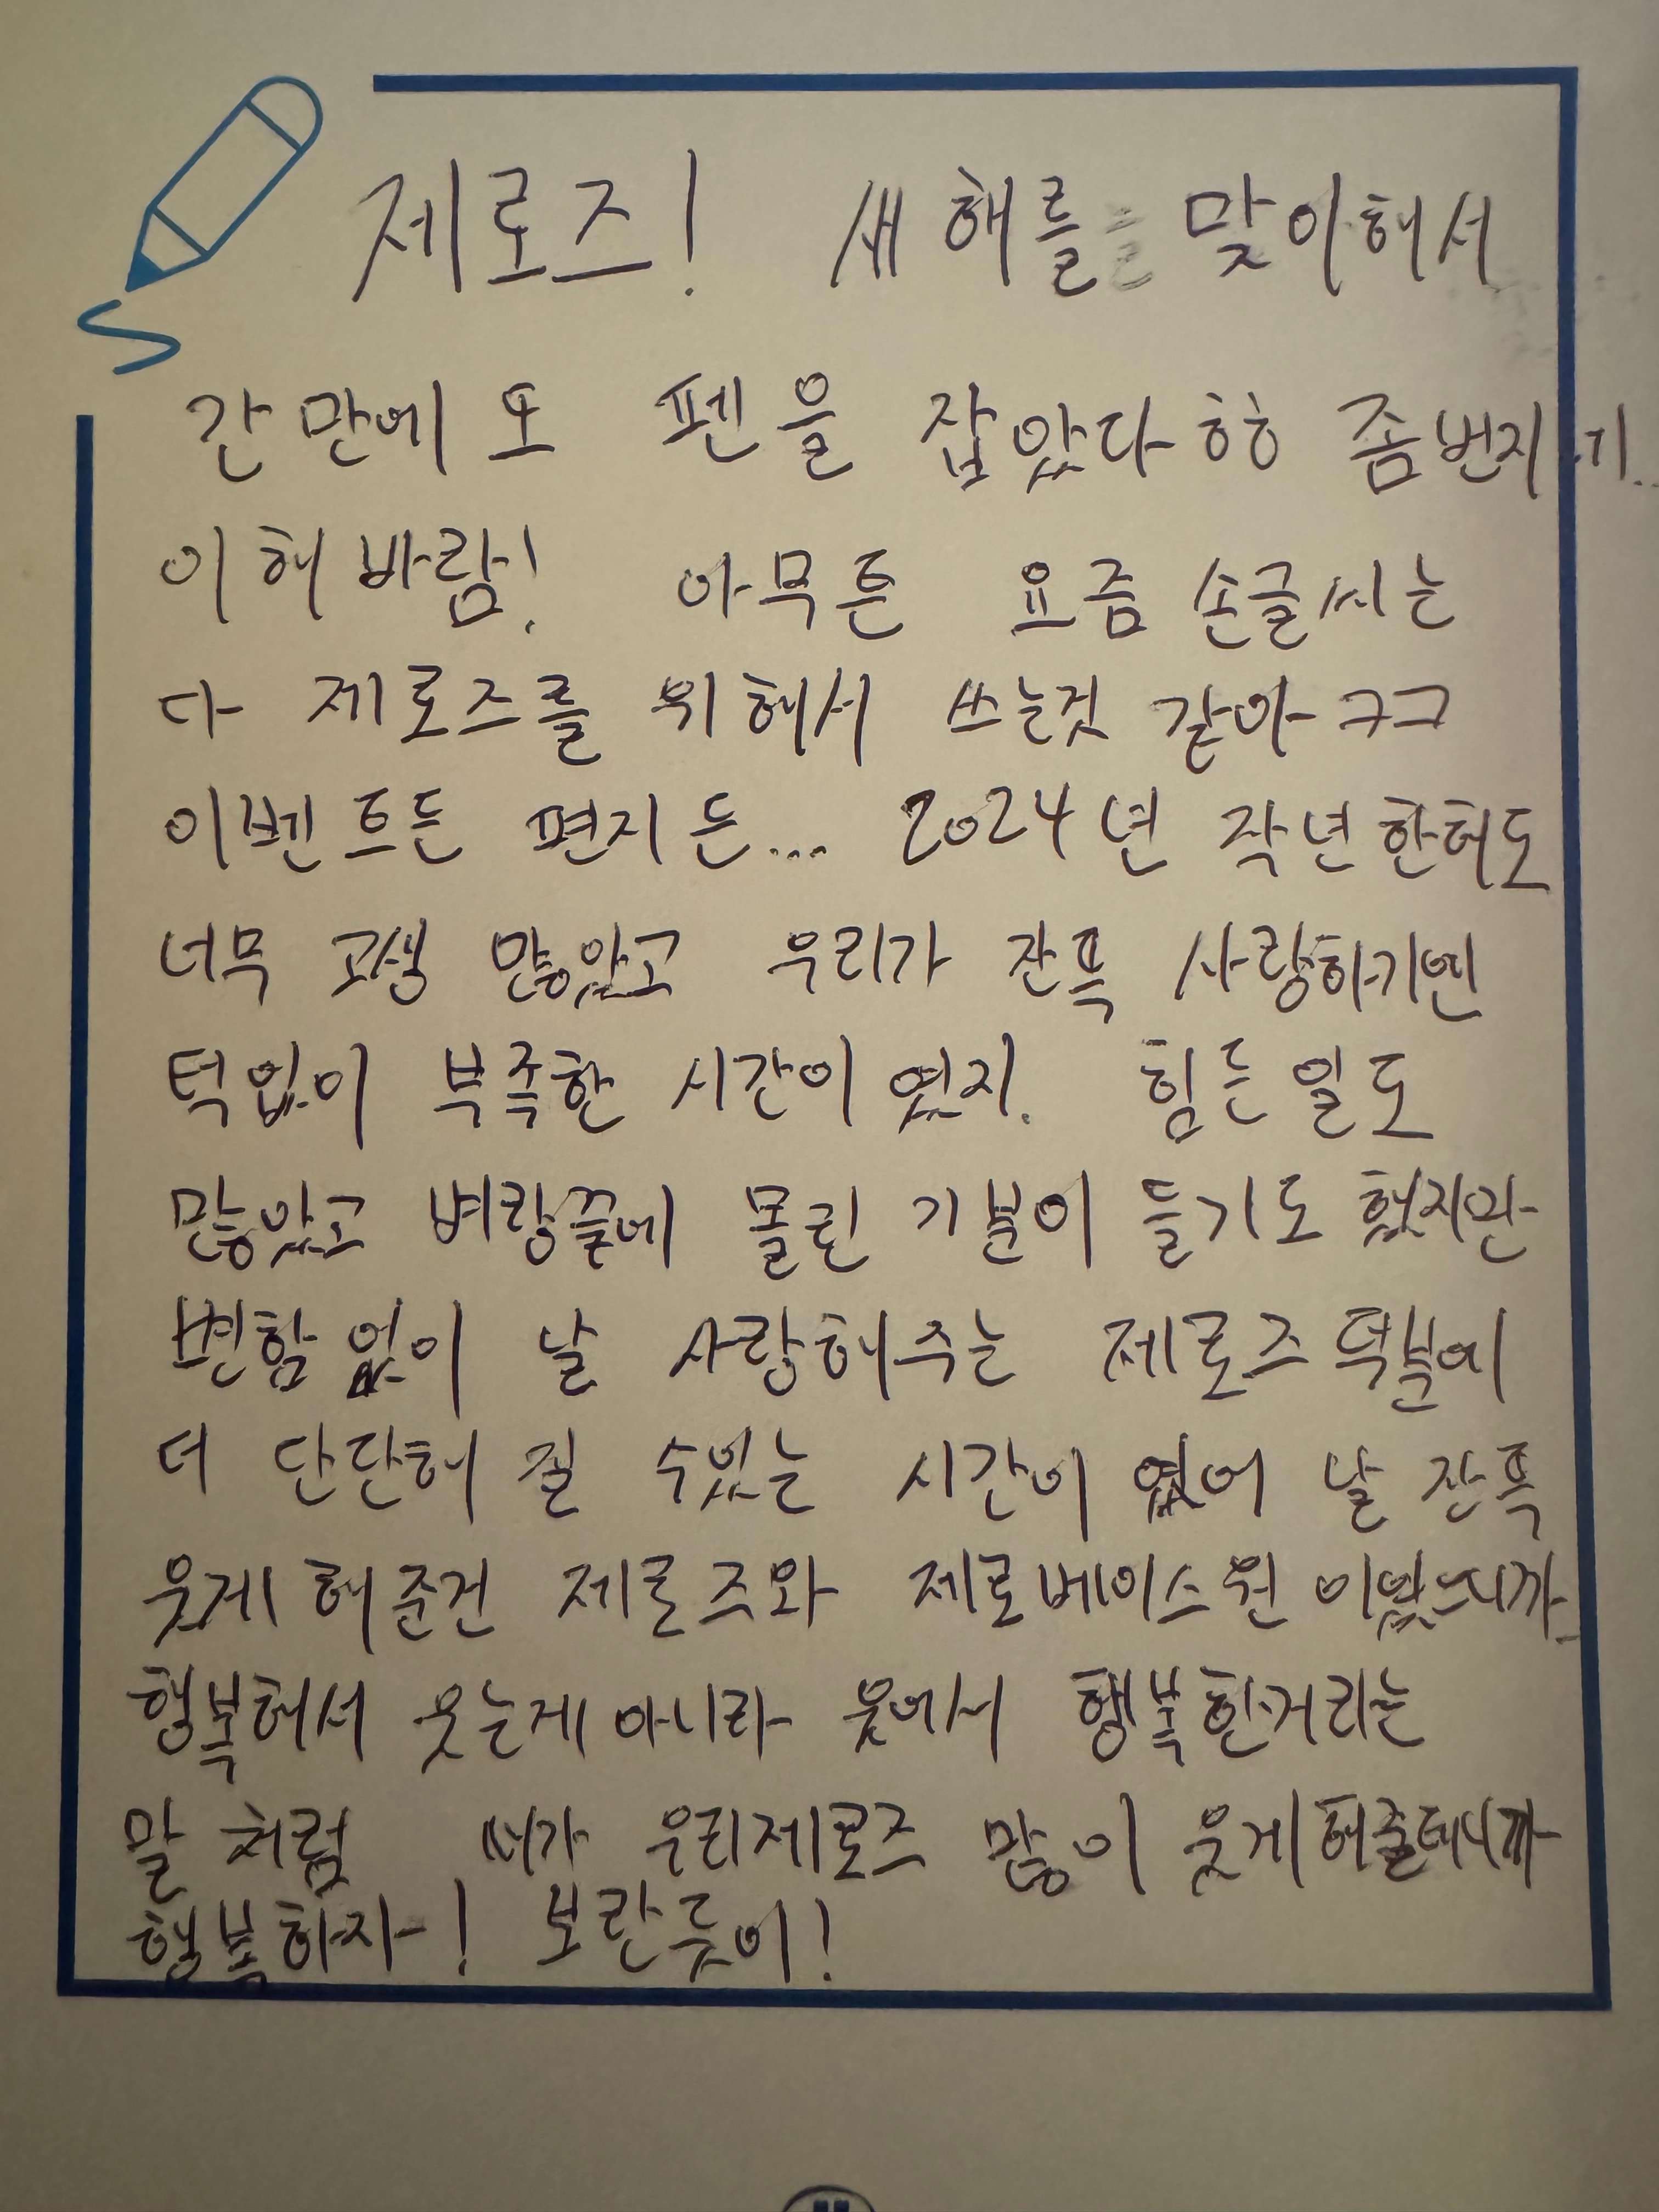 제로즈! 새해를 맞이해서
간만에 또 펜을 잡았다 ㅎㅎ 좀 번지기..
이해바람! 아무튼 요즘 손글씨는
다 제로즈를 위해서 쓰는것 같아 ㅋㅋ
이벤트든 편지든... 2024년 작년한해도
너무 고생 많았고 우리가 잔뜩 사랑하기엔
턱없이 부족한 시간이 였지. 힘든일도
많았고 벼랑끝에 몰린 기분이 들기도 했지만
변함없이 날 사랑해주는 제로즈 덕분에
더 단단해 질 수있는 시간이 였어 날 잔뜩
웃게 해준건 제로즈와 제로베이스원 이였으니까
행복해서 웃는게 아니라 웃어서 행복한거라는
말 처럼 내가 우리제로즈 많이 웃게해줄테니까
행복하자! 보란듯이!